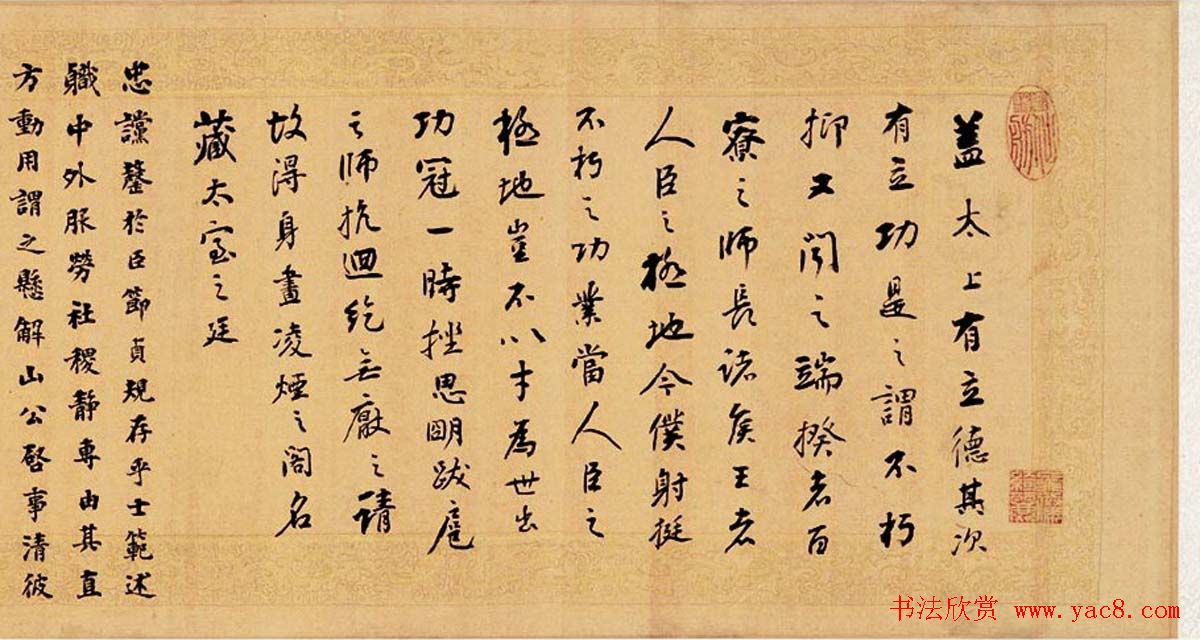 蓋太上有立德其次
有立功是之謂不朽
抑又聞之端揆者百
寮之師長諸侯王者
人臣之極地今僕射挺
不朽之功業當人臣之
極地豈不以才為世出
功冠一時挫思明跋扈
之師抗迴紇無厭之請
故得身畫凌煙之閣名
藏太室之廷
忠讜罄於臣節貞規存乎士範述
職中外服勞社稷靜專由其直
方動用謂之懸解山公啓事清彼
书法欣赏 www.yac8.com